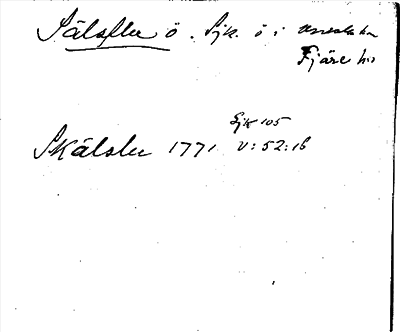 Sälsflu ö. Sjk. ö i Onsala sn
Fjäre hd
Sjk 105
Skälslu 1771 V:52:16